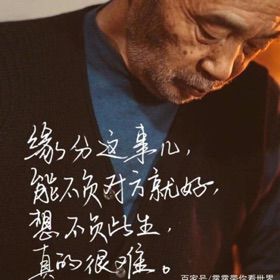 缘分这事儿，
能不负对方就好，
想不负此生，
真的很难。
百家号/露露带你看世界